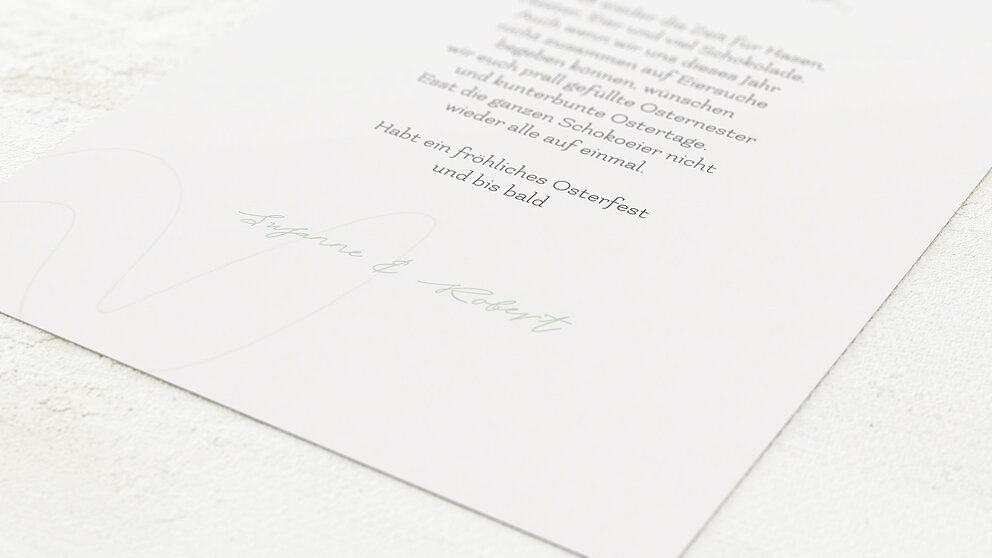 wieder die Zeit für Hasen,
Eier und viel Schokolade.
Auch wenn wir uns dieses Jahr
nicht zusammen auf Eiersuche
begeben können, wünschen
wir euch prall gefüllte Osternester
und kunterbunte Ostertage.
Esst die ganzen Schokoeier nicht
wieder alle auf einmal.
Habt ein fröhliches Osterfest
und bis bald
Susanne & Robert